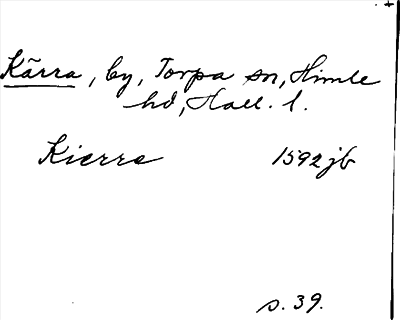 Kärra, by, Torpa sn, Himle
hd, Hall. l.
Kierre 1592 jb
s. 39.